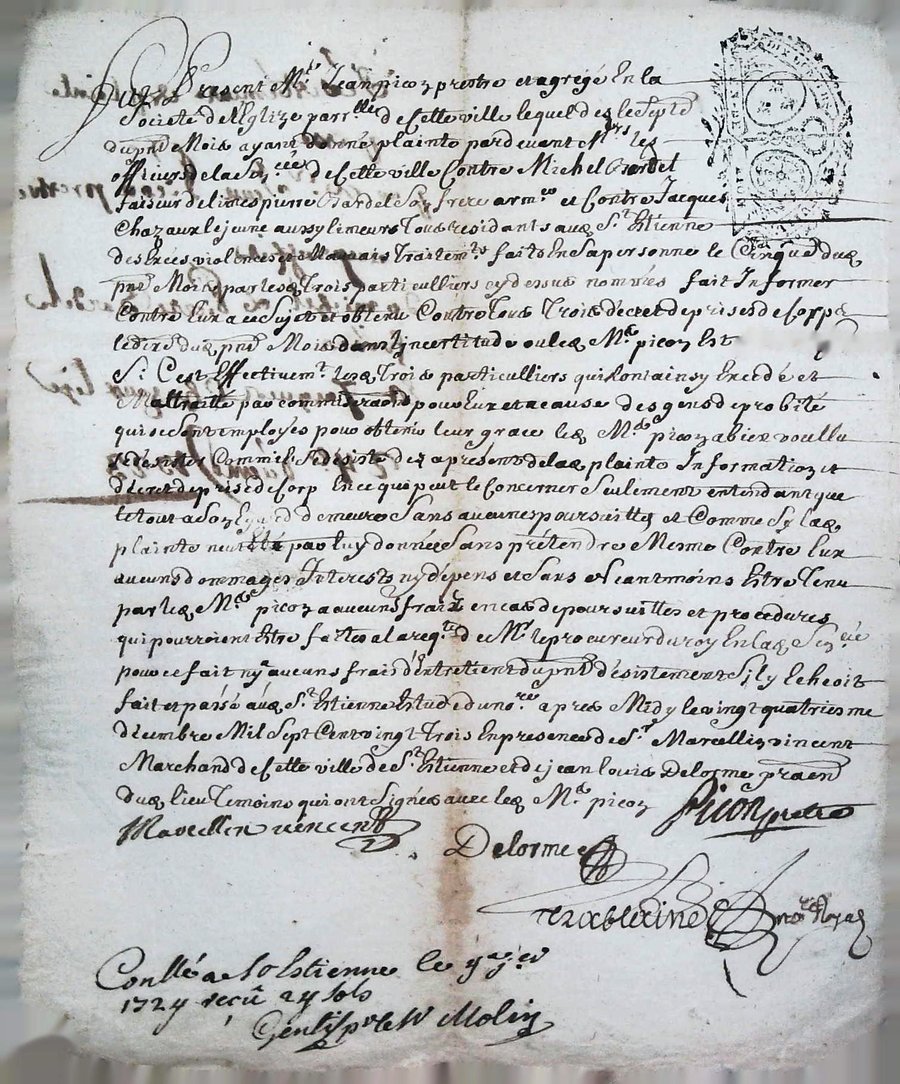 Fut Present Mre Jean picon prestre et agregé En la
Societé de l'Eglize parrlle de Cette ville lequel dez le Septe
du pnt Mois ayant donné plainte pardevant Mrs les
officiers de la de Cette ville Contre Michel Chardel
faiseur de limes pierre Chardel Son frere et Contre Jacques
Chazaux le jeune aussy limeurs Tous residants aud St Estienne
des Excés violences et Mauvais Traitemts faits En Sa personne le Cinqe dud
pnt Mois par lesd Trois particulliers cy dessus nommés fait Informer
Contre Eux a ce Sujet et obtenu Contre Tous Trois décret de prises de Corps
le dixe dud pnt Mois dans l'incertitude ou led Mre picon Est
Sy C'est Effectivemt lesd Trois particulliers qui l'ont ainsy Excedé et
Maltraitté par commiseraon pour Eux et a cause des gens de probité
qui se Sont employés pour obtenir leur grace led Mre picon a bien voullu
se désister Comme il Se désiste dez apresent de lad plainte Information et
décret de prise de Corp En ce qui peut le Concerner Seulement entendant que
le tout a Son Egard demeure Sans aucunes poursuittes et Comme Sy lad
plainte neut Eté par luy donnée Sans prétendre Mesme Contre Eux
aucuns dommages Interests ny dépens et Sans Néantmoins Estre Tenu
par led Mre picon a aucuns fraix en cas de poursuittes et procedures
qui pourroient Estre faites a la reqte de Mr le procureur du roy En lad
pour ce fait ny aucuns frais d'Entretient du pnt désistement S'il y Echeoit
fait et passé aud St Estienne Estude du nore apres Midy le vingt quatriesme
décembre Mil Sept Cent vingt Trois En presence de Sr Marcellin vincent
Marchand de Cette ville de St Estienne et de jean louis Delorme praen
dud lieu Temoins qui ont Signés avec led Mre picon Picon pretre
Marcellin vincent
Delorme
nore Royal
Conllé a St Estienne le 4e
1724 reçû 24 sols
Gentil pr le Sr Molin